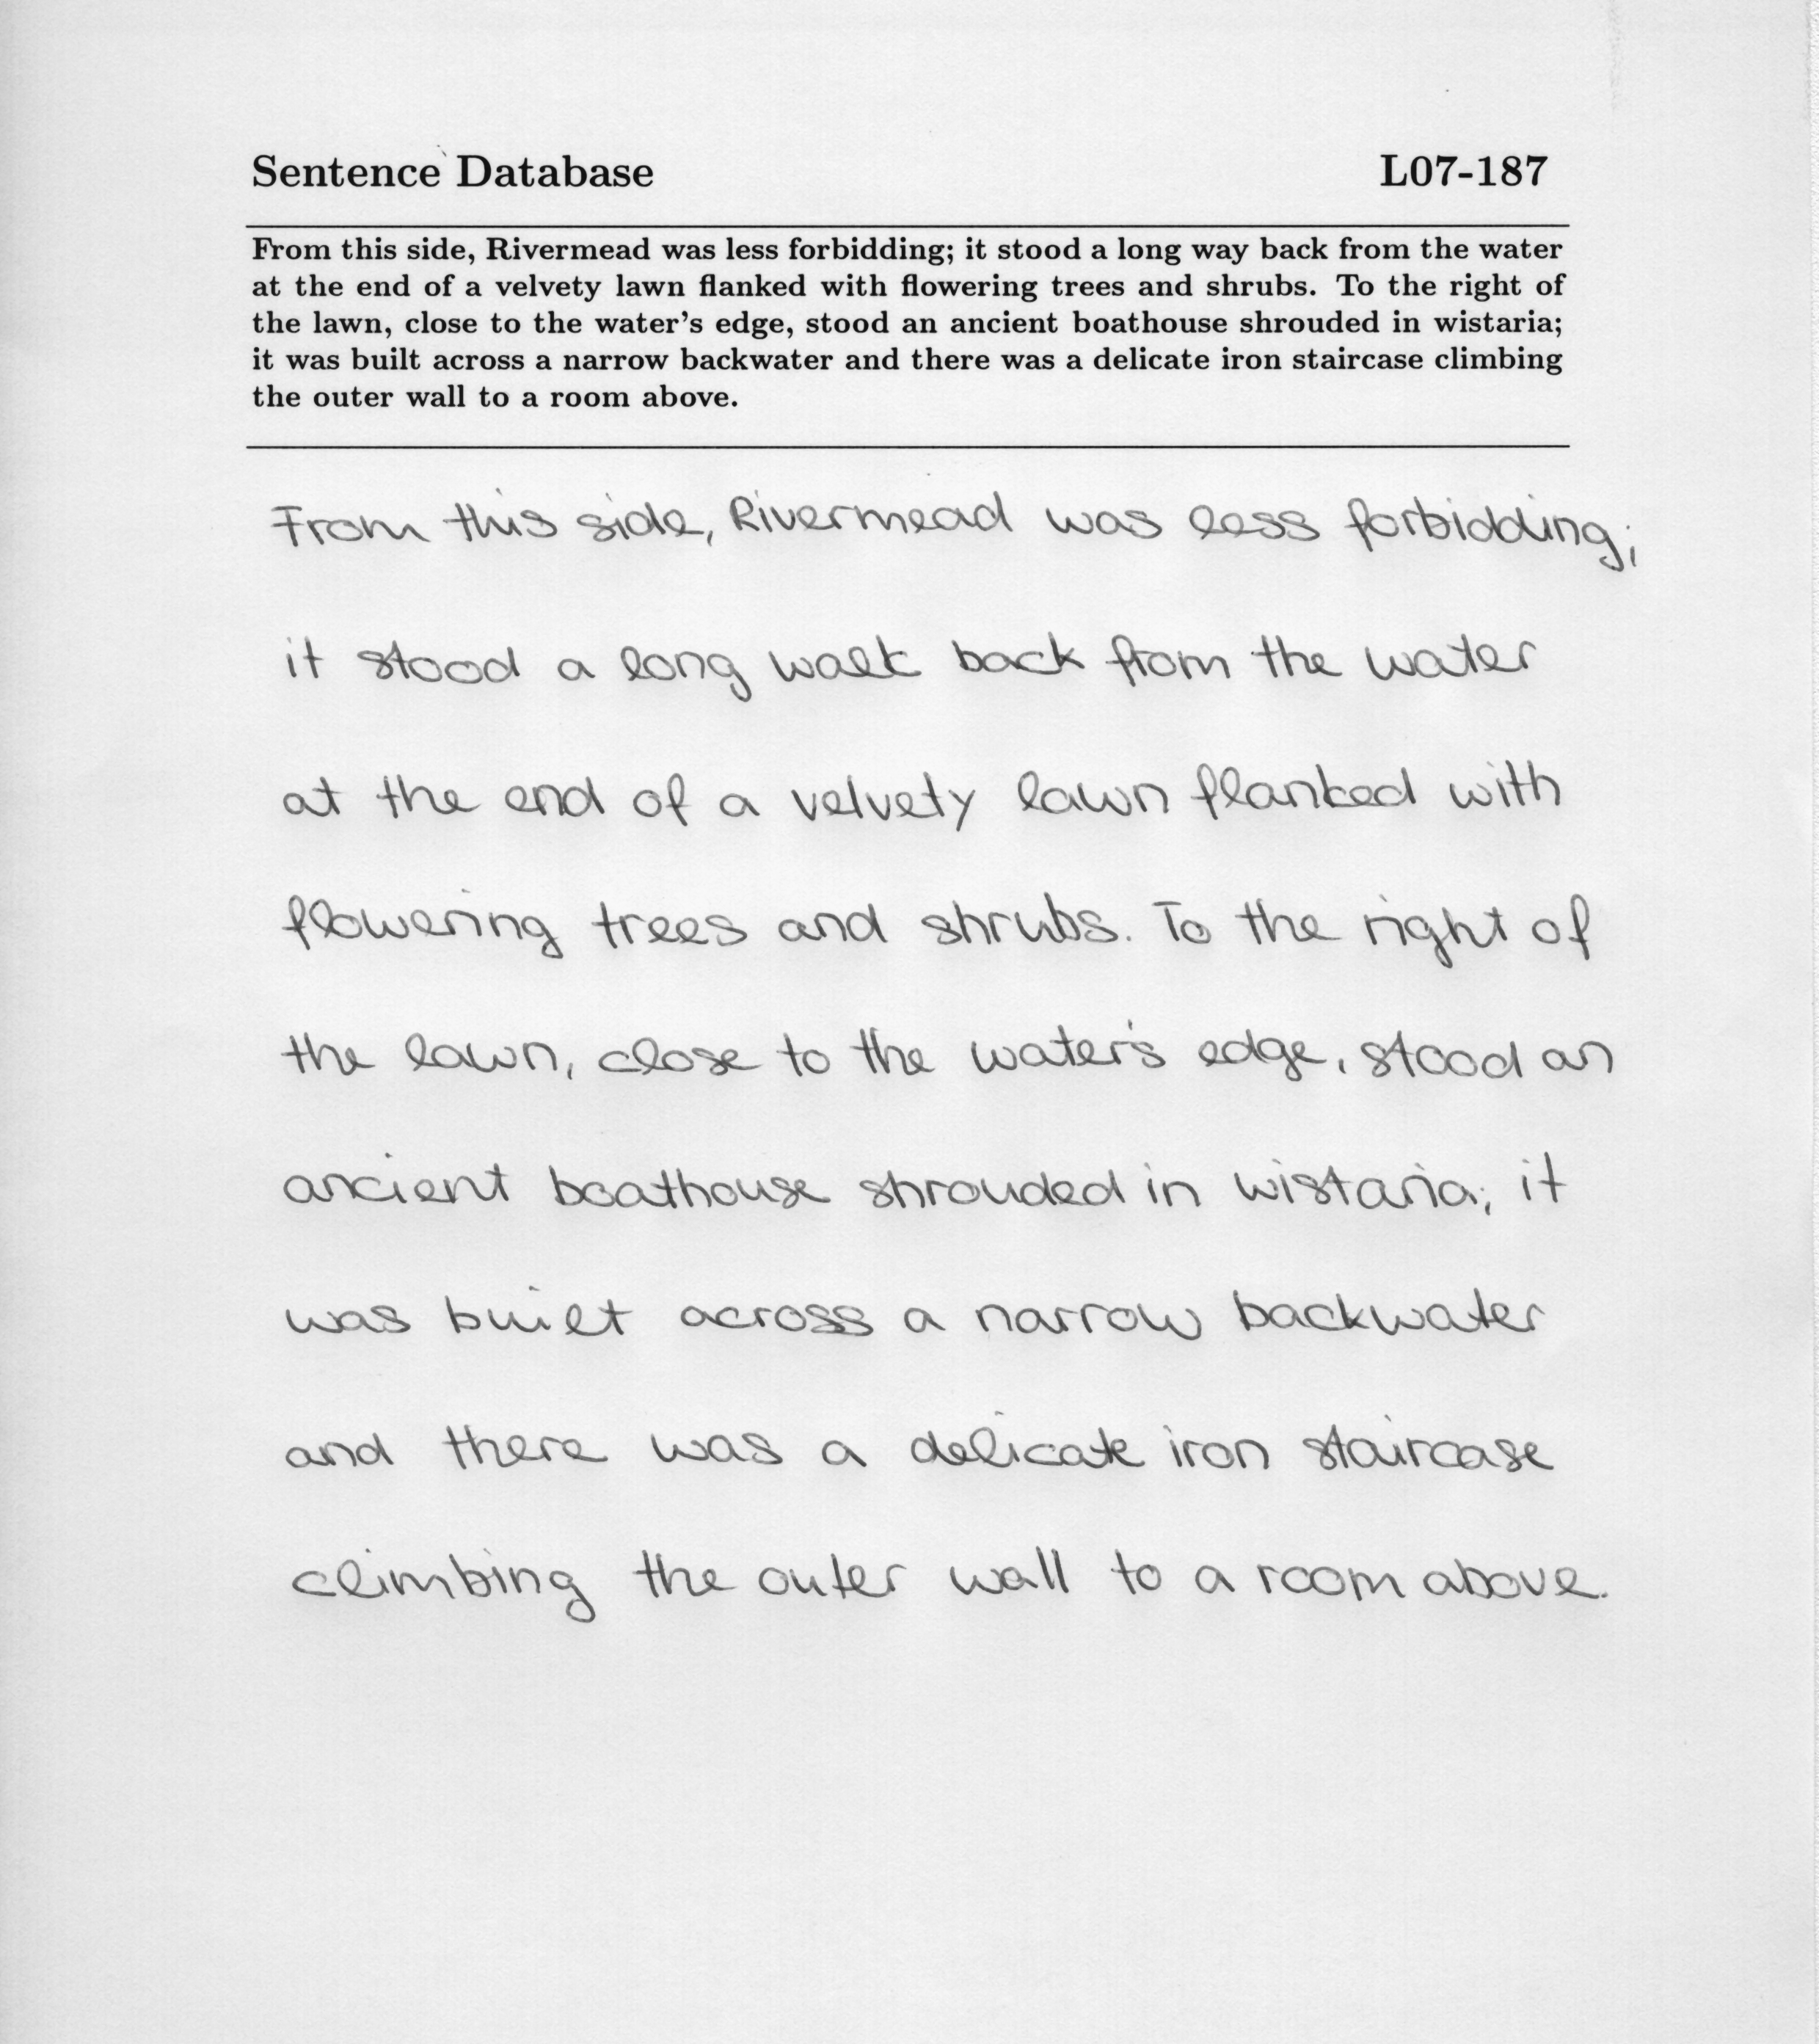 Sentence Database L07-187
From this side, Rivermead was less forbidding; it stood a long way back from the water
at the end of a velvety lawn flanked with flowering trees and shrubs. To the right of
the lawn, close to the water's edge, stood an ancient boathouse shrouded in wistaria;
it was built across a narrow backwater and there was a delicate iron staircase climbing
the outer wall to a room above.
From this side, Rivermead was less forbidding;
it stood a long walk back from the water
at the end of a velvety lawn flanked with
flowering trees and shrubs. To the right of
the lawn, close to the water's edge, stood an
ancient boathouse shrouded in wistaria; it
was built across a narrow backwater
and there was a delicate iron staircase
climbing the outer wall to a room above.